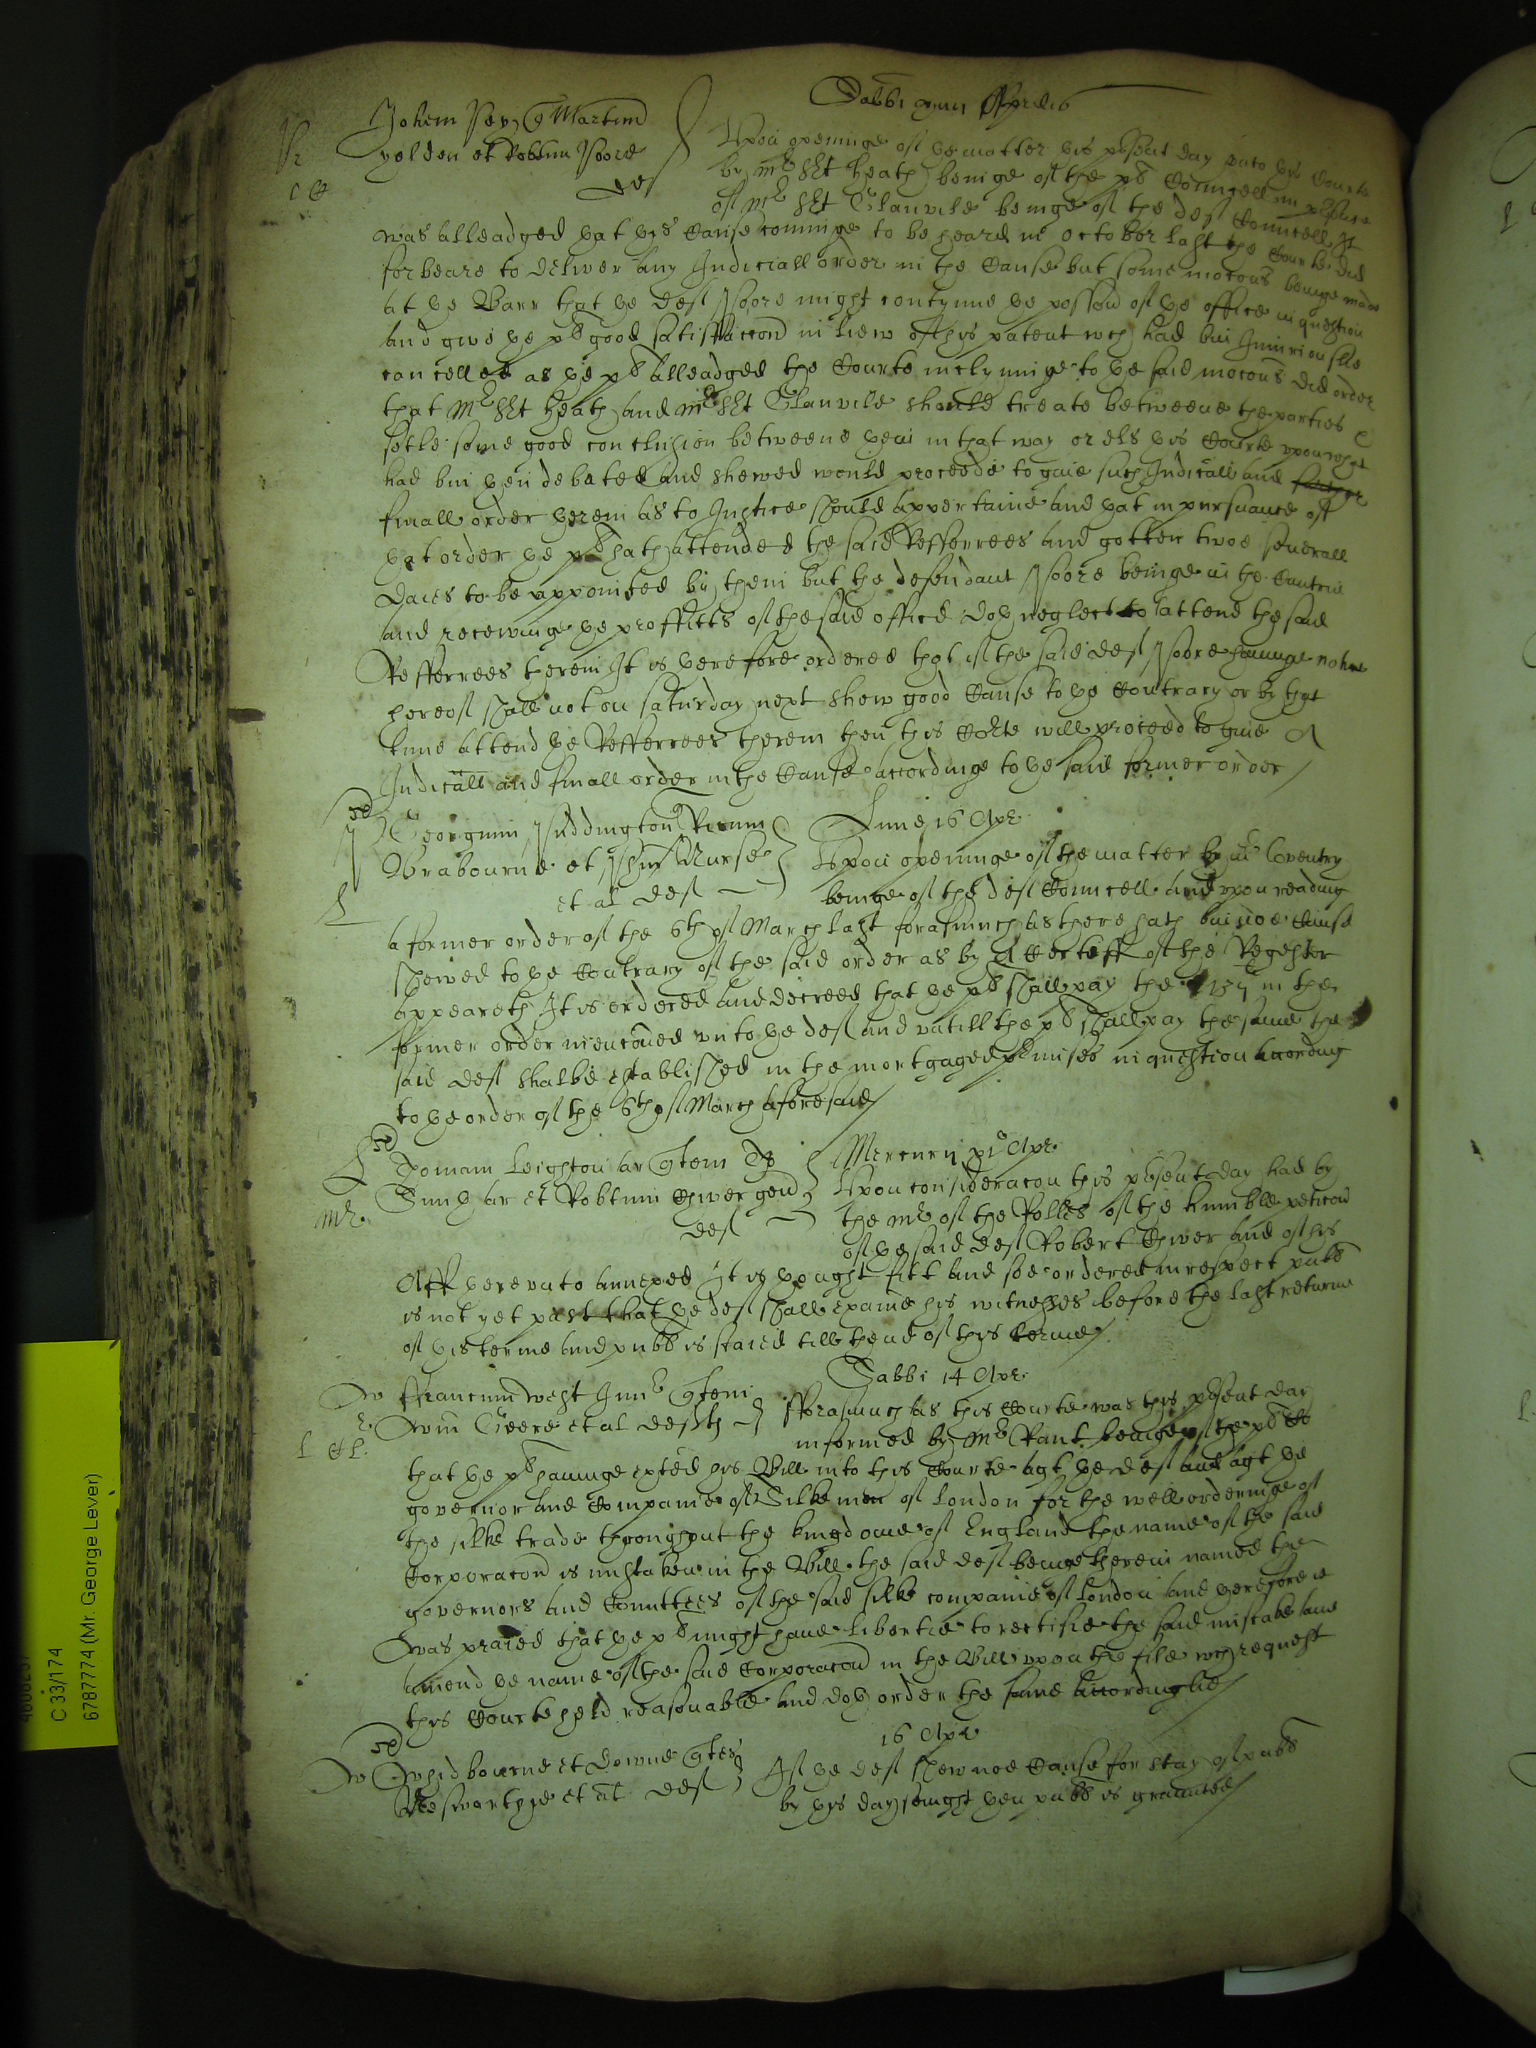 Sabbi xiiii Aprilis
Johem Pey q Martin
yelden et Robtum Poore
def
Upon openinge of ye matter this pñt day unto this Courte
by mr sit heath beinge of the pl Councell in psence
of mr sit Glanvile beinge of the def Councell It
was alleadged yat this Cause cominge to be heard in october last the Courte did
forbeare to deliver any Judiciall order in the Cause but some mocons beinge made
at ye Barr that ye def Poore might contynue ye possion of ye office in question
and give ye pl good satisfaccon in liew of his patent wch had bin Iniuriouslie
cancelled as ye pl alleadged the Courte inclyninge to ye said mocons did order
that Mr sit heath and mr sit Glanvile should treate betweene the parties &
setle some good conclusion betweene yem in that way or els this Courte upon what
had bin yen debated and shewed would proceede to give such Judiciall and
finall order yerein as to Justice should appertaine and yat in pursuance of
yat order ye pl hath attended the said Refferrees and gotten twoe severall
daies to be appointed by them but the defendant Poore beinge in the Cuntrie
and receivinge ye proffitts of the said office doth neglect to attend the said
Refferrees therein It is yerefore ordered that if the said def Poore havinge notice
hereof shall not on saturday next shew good Cause to ye Contrary or by that
tyme attend ye Refferrees therein then this Corte will proceed to give a
Judiciall and finall order in the Cause accordinge to ye said former order
Georgium Puddington
Brabourne et Nurse
et al def
Lune 16 Apr
Upon openinge of the matter by mr Coventry
beinge of the def Councell and upon readinge
a former order of the 6th of March last forasmuch as there hath bin noe Cause
shewed to ye Contrary of the said order as by a Certeff of the Regester
appeareth It is ordered and decreed that ye pl shall pay the in the
former order menconed unto ye def and untill the pl shall pay the same the
said def shalbe established in the mortgaged pmises in question according
to ye order of the 6th of March aforesaid
Thomam Leighton ar qtem
Smith ar et Robtum
def
Mercurij Apr
Upon consideracon this psent day had by
the mr of the Rolles of the humble peticon
of ye said def Robert and of his
Aff yereunto annexed It is thought fitt and soe ordered in respect publ
is not yet past that ye def shall examine his witnesses before the last returne
of this terme and publ is staied till thend of this terme
Sabbi 14 Apr
ffrancium West qtem
Geere et al def
fforasmuch as this Courte was this psent day
informed by Mr Rant beinge of the pl Co
that ye pl havinge exhibited his Bill into this Courte agt ye def and agt ye
governor and Companie of Silkemen of London for the well orderinge of
the silke trade throughout the kingdome of England the name of the said
Corporacon is mistaken in the Bill the said def beinge therein named the
governors and Comittees of the said silke companie of London and therefore it
was praied that ye pl might have libertie to rectifie the said mistake and
amend ye name of the said Corporacon in the Bill upon the file wch request
this Courte held reasonable and doth order the same accordinglie
Whidbourne et Downe qtes
et al def
16 Apr
If ye def shew noe Cause for stay of publ
by this day sevnight then publ is graunted
C 33/174
6787774 (Mr. George Lever)